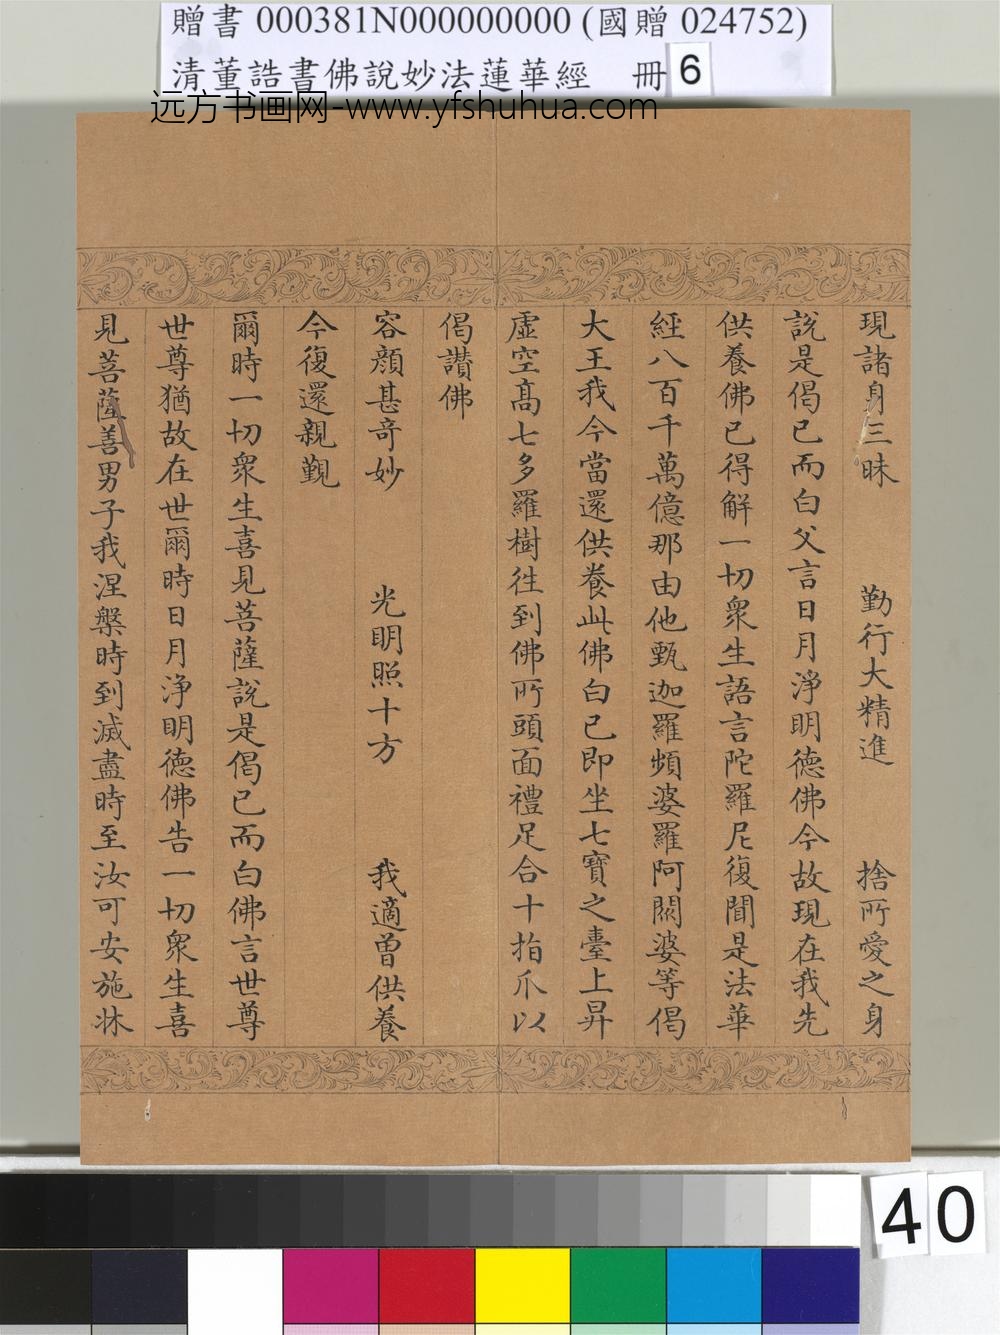 贈書 000381N000000000 (國贈 024752)
清董誥書佛說妙法蓮華經 冊 6
远方书画网-www.yfshuhua.com
現諸身三昧 勤行大精進 捨所愛之身
說是偈已而白父言日月淨明德佛今故現在我先
供養佛已得解一切衆生語言陀羅尼復聞是法華
經八百千萬億那由他甄迦羅頻婆羅阿閦婆等偈
大王我今當還供養此佛白已即坐七寶之臺上昇
虛空高七多羅樹往到佛所頭面禮足合十指爪以
偈讚佛
容顏甚奇妙 光明照十方 我適曾供養
今復還親覲
爾時一切衆生喜見菩薩說是偈已而白佛言世尊
世尊猶故在世爾時日月淨明德佛告一切衆生喜
見菩薩善男子我涅槃時到滅盡時至汝可安施牀
40